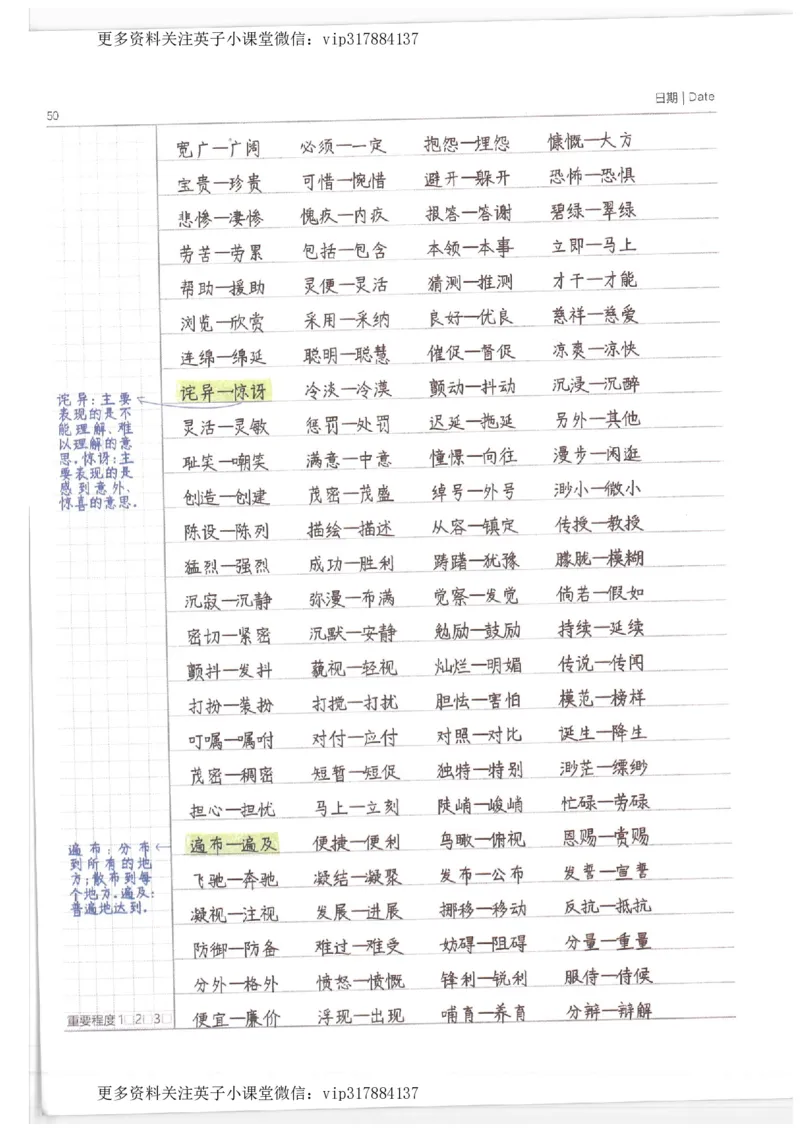 更多资料关注英子小课堂微信：vip317884137
日期 | Date
50
宽广—广阔 必须—一定 抱怨—埋怨 慷慨—大方
宝贵—珍贵 可惜—惋惜 避开—躲开 恐怖—恐惧
悲惨—凄惨 愧疚—内疚 报答—答谢 碧绿—翠绿
劳苦—劳累 包括—包含 本领—本事 立即—马上
帮助—援助 灵便—灵活 猜测—推测 才干—才能
浏览—欣赏 采用—采纳 良好—优良 慈祥—慈爱
连绵—绵延 聪明—聪慧 催促—督促 凉爽—凉快
诧异—惊讶 冷淡—冷漠 颤动—抖动 沉浸—沉醉
灵活—灵敏 惩罚—处罚 迟延—拖延 另外—其他
耻笑—嘲笑 满意—中意 憧憬—向往 漫步—闲逛
创造—创建 茂密—茂盛 绰号—外号 渺小—微小
陈设—陈列 描绘—描述 从容—镇定 传授—教授
猛烈—强烈 成功—胜利 踌躇—犹豫 朦胧—模糊
沉寂—沉静 弥漫—布满 觉察—发觉 倘若—假如
密切—紧密 沉默—安静 勉励—鼓励 持续—延续
颤抖—发抖 藐视—轻视 灿烂—明媚 传说—传闻
打扮—装扮 打搅—打扰 胆怯—害怕 模范—榜样
叮嘱—嘱咐 对付—应付 对照—对比 诞生—降生
茂密—稠密 短暂—短促 独特—特别 渺茫—缥缈
担心—担忧 马上—立刻 陡峭—峻峭 忙碌—劳碌
遍布—遍及 便捷—便利 鸟瞰—俯视 恩赐—赏赐
飞驰—奔驰 凝结—凝聚 发布—公布 发誓—宣誓
凝视—注视 发展—进展 挪移—移动 反抗—抵抗
防御—防备 难过—难受 妨碍—阻碍 分量—重量
分外—格外 愤怒—愤慨 锋利—锐利 服侍—侍候
便宜—廉价 浮现—出现 哺育—养育 分辨—辩解
诧异：主要
表现的是不
能理解、难
以理解的意
思。惊讶：主
要表现的是
感到意外、
惊喜的意思。
遍布：分布
到所有的地
方；散布到每
个地方。遍及：
普遍地达到。
重要程度 1□2□3□
更多资料关注英子小课堂微信：vip317884137